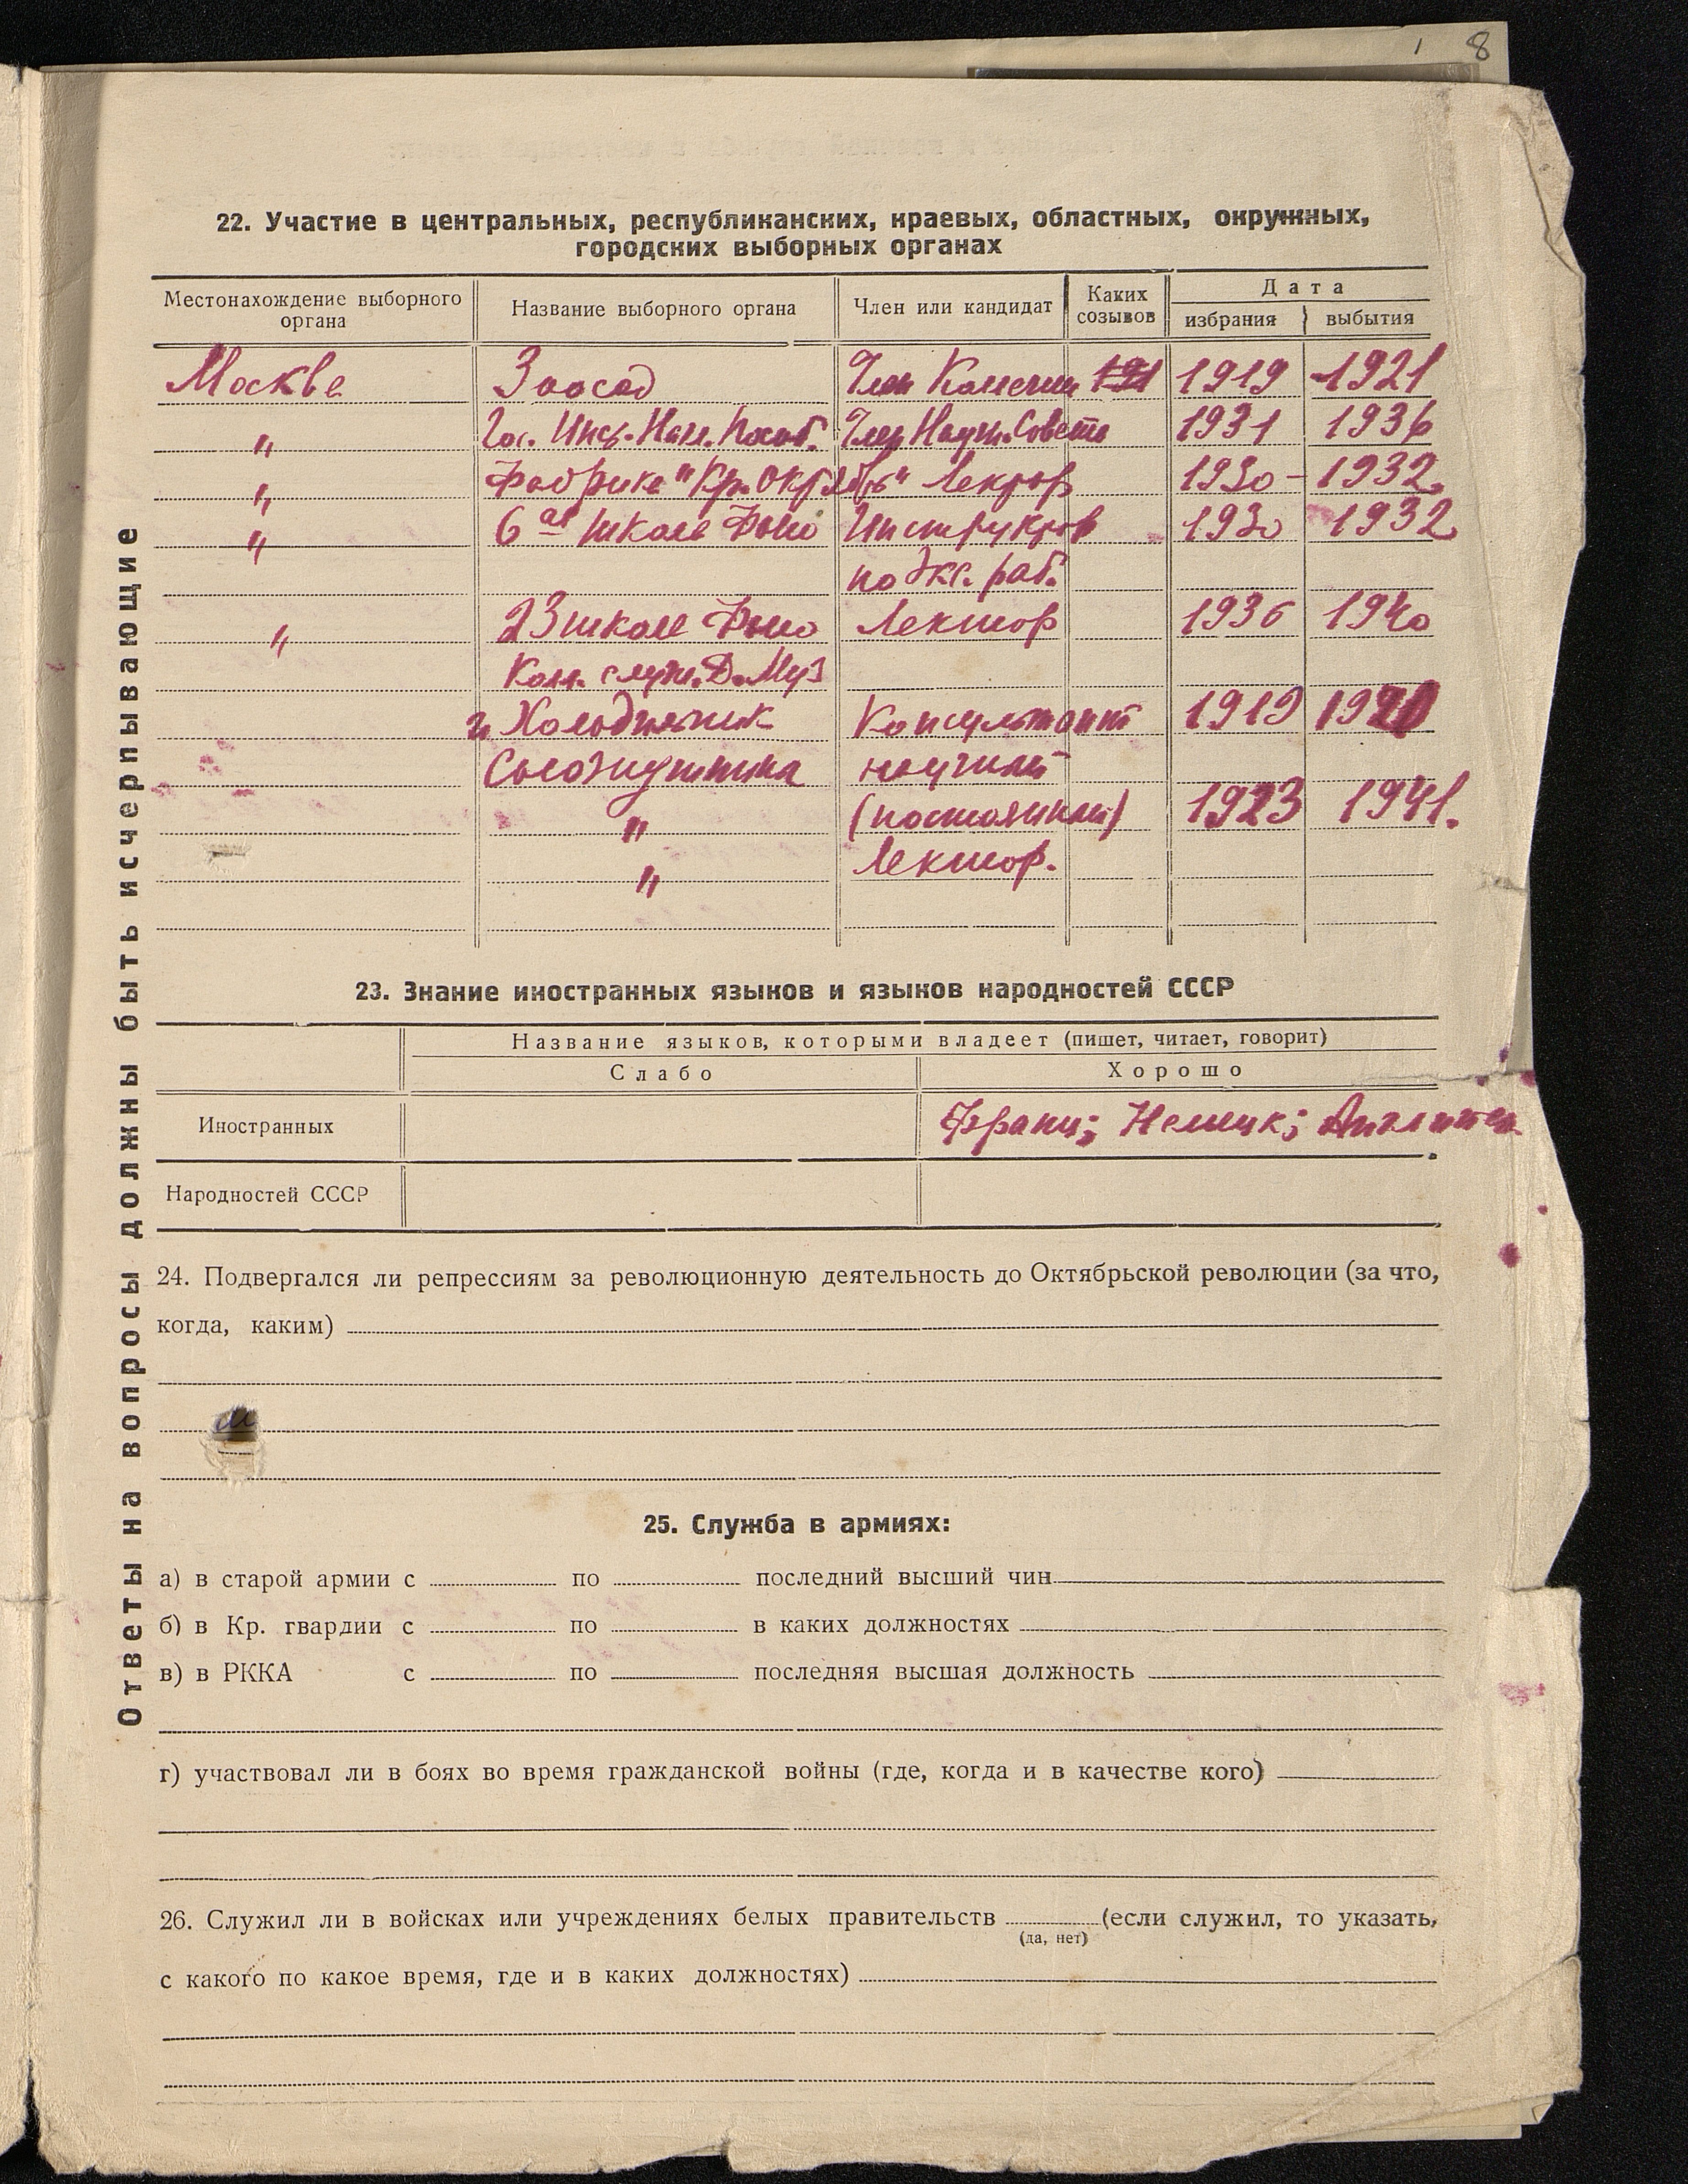 8
22. Участие в центральных, республиканских, краевых, областных, окружных,
городских выборных органах
Местонахождение выборного органа | Название выборного органа | Член или кандидат | Каких созывов | Дата
избрания | выбытия
Москва | Зоосад | Член Комиссии | 1919 | 1921
" | Гос. Инс. Нагл. Пособ. | Член Научн. Совета | 1931 | 1936
" | Фабрика "Кр. Октябрь" | Лектор | 1930 - | 1932.
" | 6ая школа | Инструктор | 1930 | 1932.
по Экс. раб.
" | 23 школа | Лектор | 1936 | 1940
служ. Д. Муз
и Холодильник | Консультант | 1919 | 1920
Союзпушнина | научный
" | (постоянный) | 1923 | 1941.
" | Лектор.
23. Знание иностранных языков и языков народностей СССР
Название языков, которыми владеет (пишет, читает, говорит)
Слабо | Хорошо
Иностранных | Франц; Немецк;
Народностей СССР
24. Подвергался ли репрессиям за революционную деятельность до Октябрьской революции (за что,
когда, каким)
25. Служба в армиях:
а) в старой армии с по последний высший чин
б) в Кр. гвардии с по в каких должностях
в) в РККА с по последняя высшая должность
г) участвовал ли в боях во время гражданской войны (где, когда и в качестве кого)
26. Служил ли в войсках или учреждениях белых правительств (если служил, то указать,
(да, нет)
с какого по какое время, где и в каких должностях)
Ответы на вопросы должны быть исчерпывающие